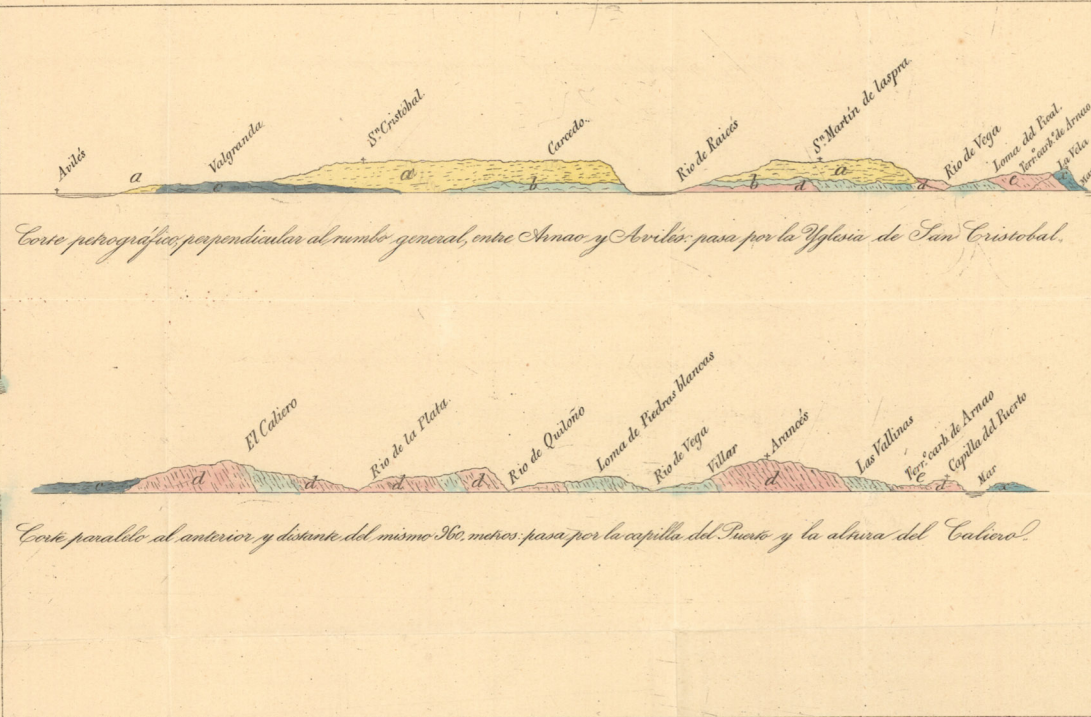 Avilés
a
Valgranda
c
Sn Cristóbal.
a
Carcedo.
b
Rio de Raicés
b
d
Sn Martín de laspra
a
d
Rio de Vega
Loma del Pical.
c
Terro. carbo. de Arnao
La Vela
Corte petrográfico, perpendicular al rumbo general, entre Arnao y Avilés: pasa por la Yglesia de San Cristobal.
c
d
El Caliero
d
Rio de la Plata.
d
d
Rio de Quiloño
Loma de Piedras blancas
Rio de Vega
Villar
Arancés
d
Las Vallinas
Terro. carb. de Arnao
c
d
Capilla del Puerto
Mar
Corte paralelo al anterior y distante del mismo 960, metros: pasa por la capilla del Puerto y la altura del Caliero.